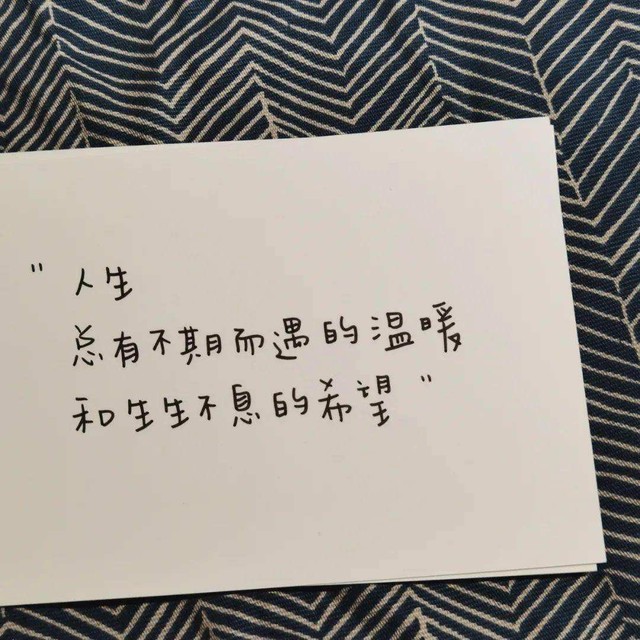 "人生
总有不期而遇的温暖
和生生不息的希望"